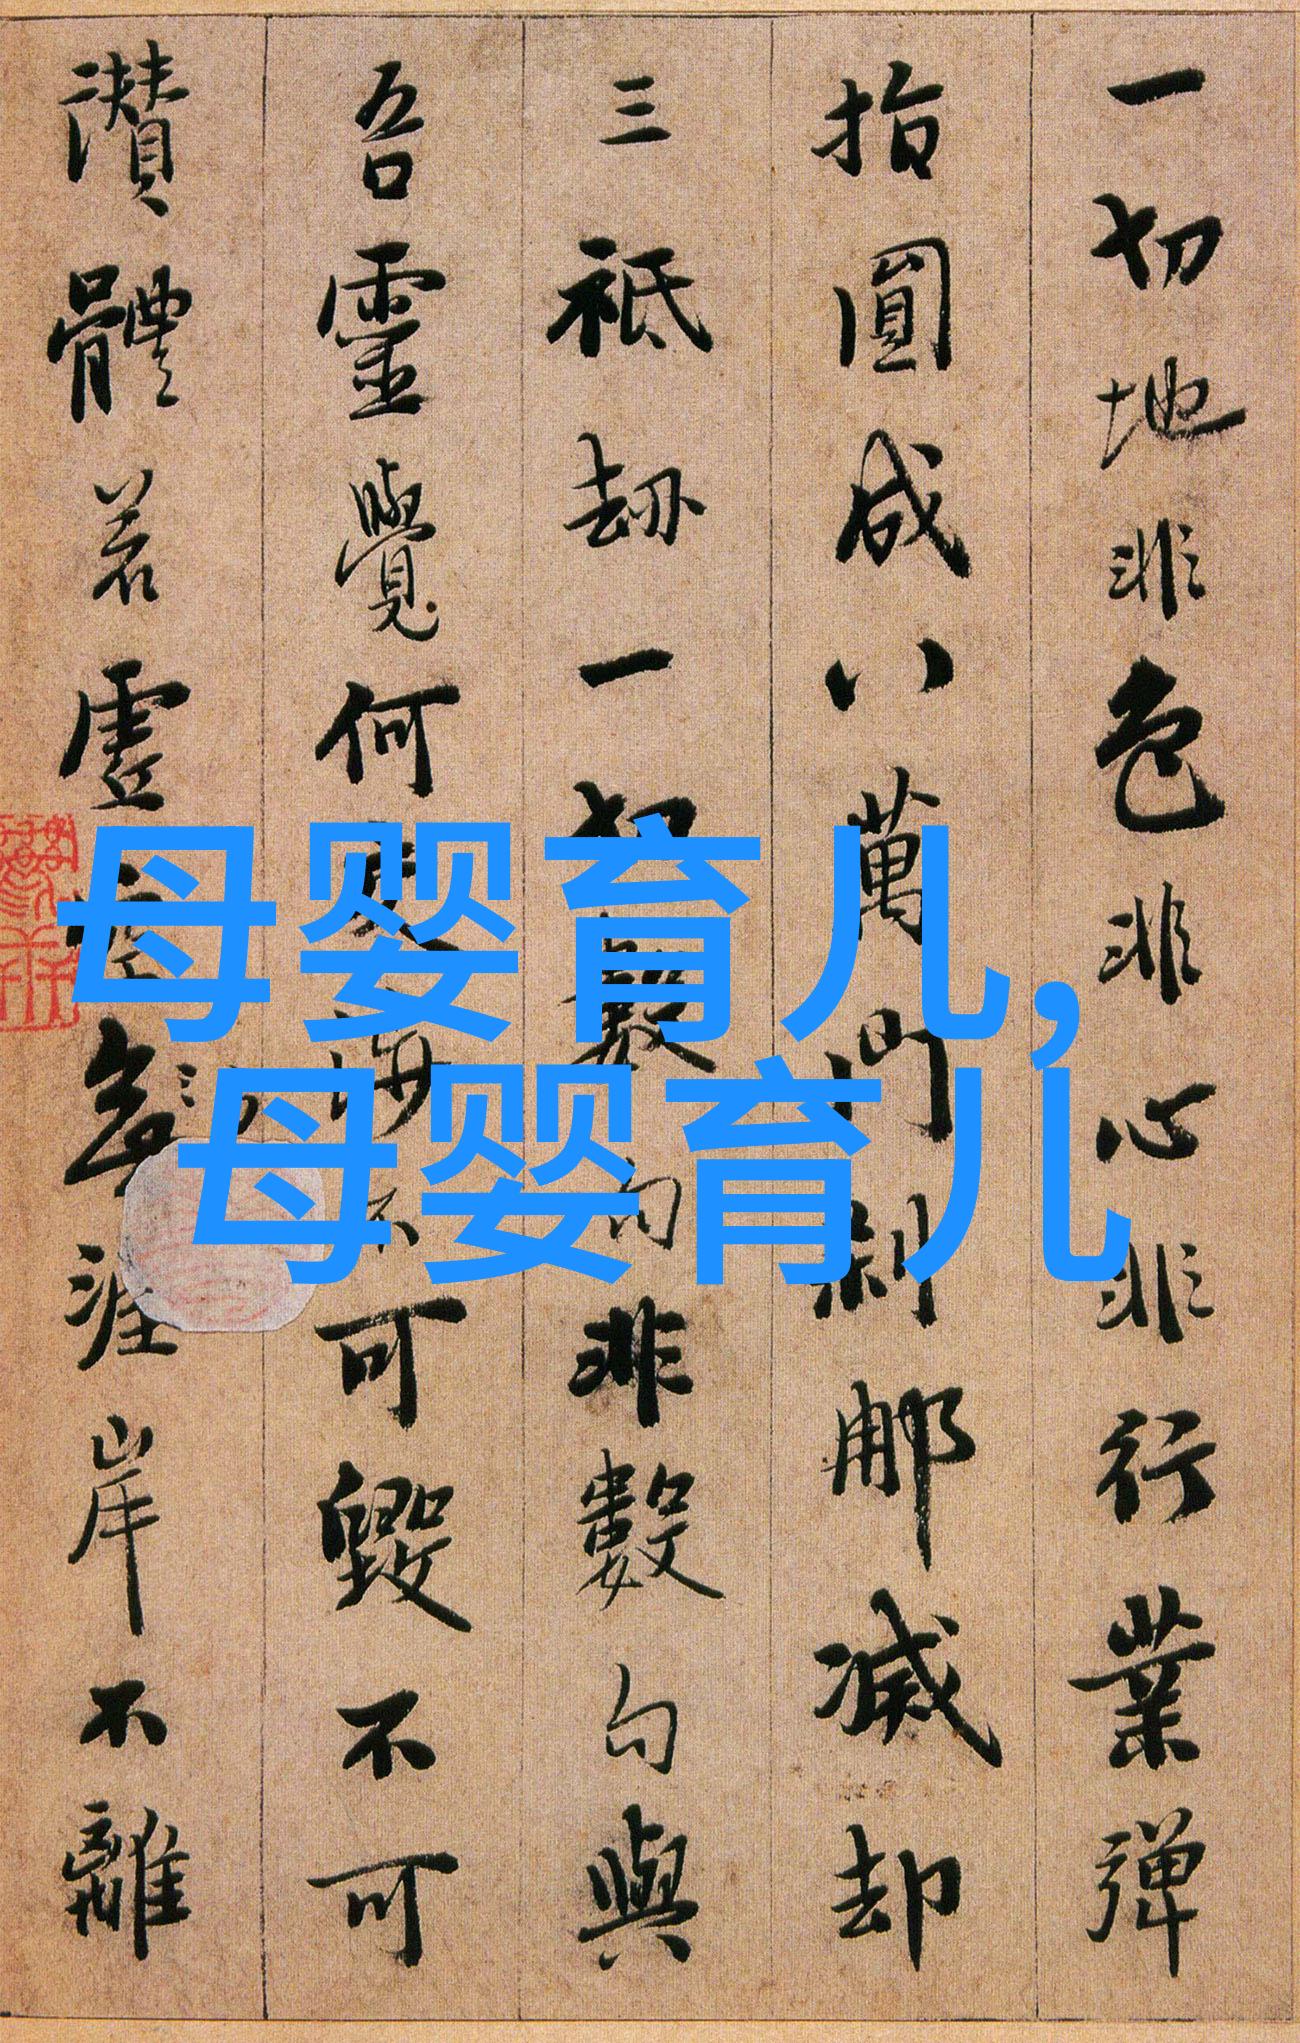 母婴育儿,
母婴育儿
一切地非色非心非行業彈
指圓成八萬門刹那滅却
三祇劫一切數句非數句與
吾靈覺何交涉不可毀不可
讚體若虛空涯岸不離